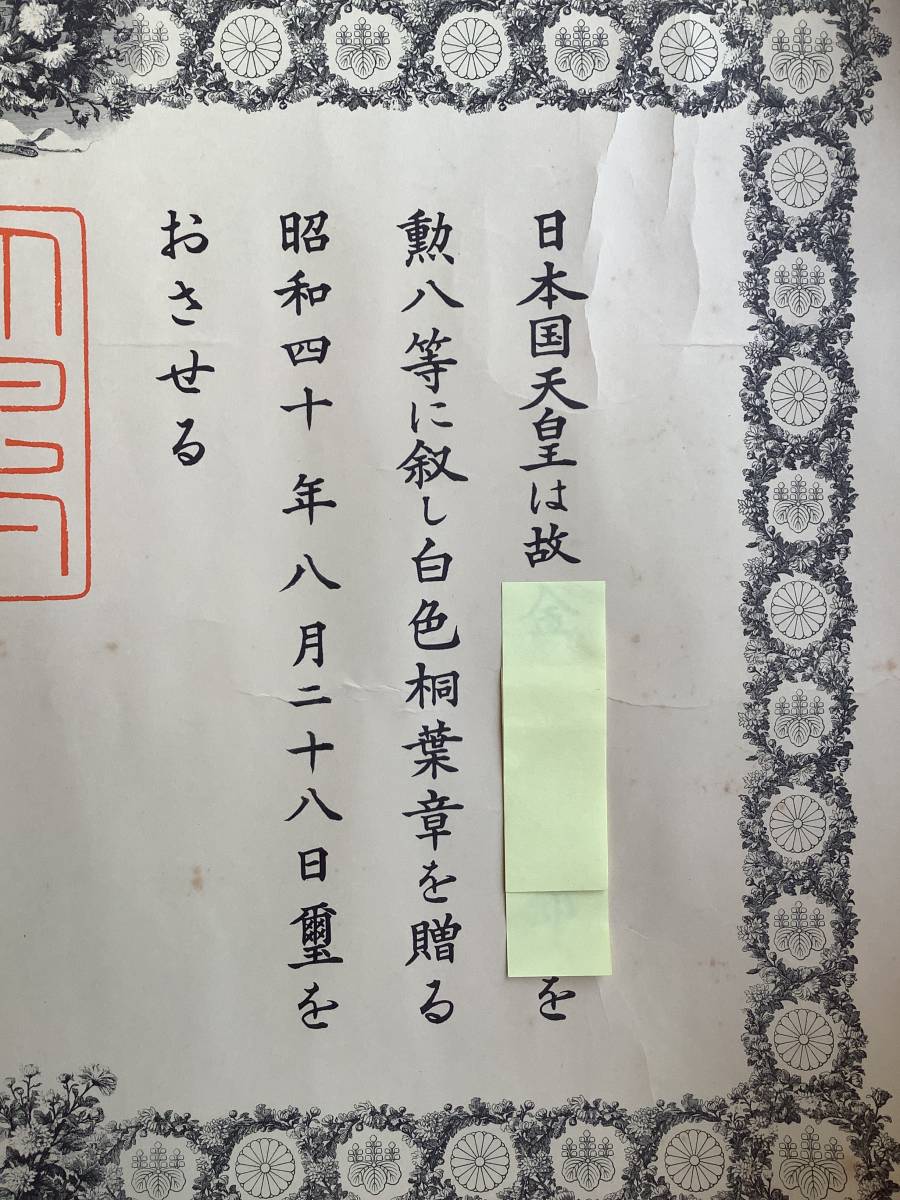 日本国天皇は故を
勲八等に叙し白色桐葉章を贈る
昭和四十年八月二十八日璽を
おさせる